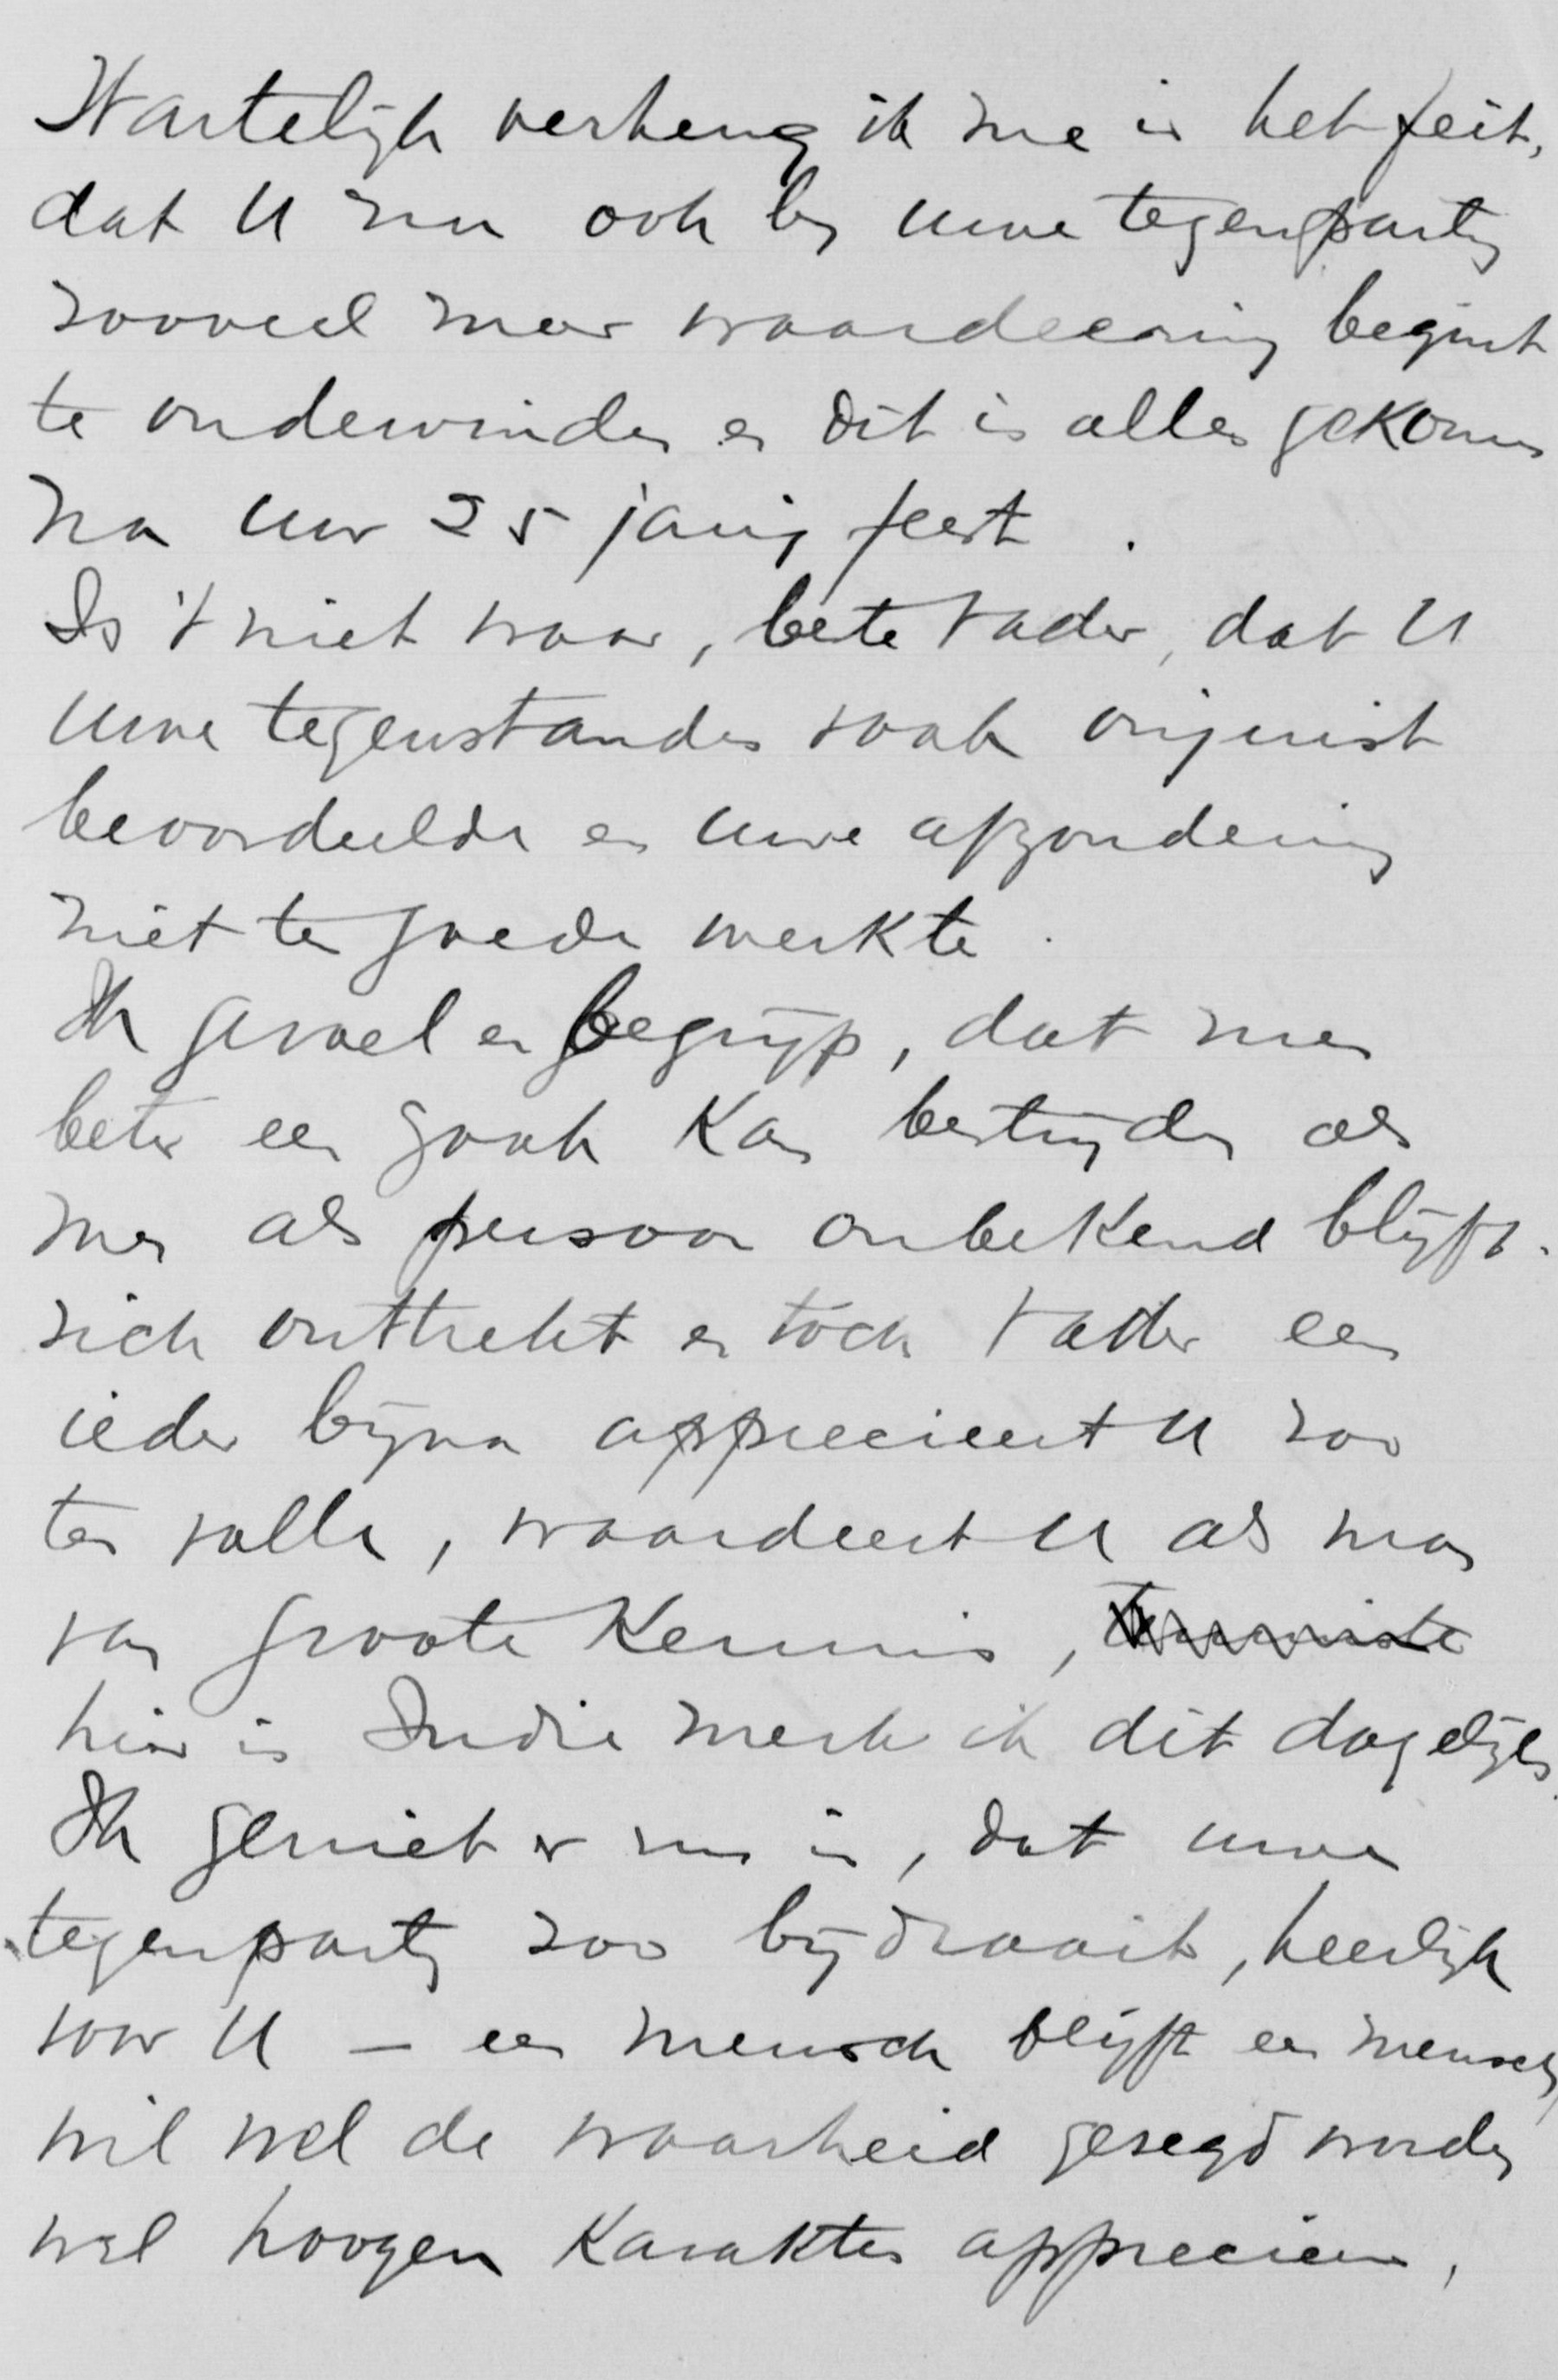 Hartelijk verheug ik me in het feit,
dat U nu ook bij uwe tegenpartij
zooveel meer waardeering begint
te ondervinden en dit is alles gekomen
na uw 25 jarig feest.
Is 't niet waar, beste Vader, dat U
uwe tegenstanders vaak onjuist
beoordeelde en uwe afzondering
niet ten goede werkte.
Ik gevoel en begrijp, dat men
beter een zaak kan bestrijden als
men als persoon onbekend blijft.
zich onttrekt en toch Vader een
ieder bijna apprecieert U zoo
ten volle, waardeert U als man
van groote Kennis,
hier in Indie merk ik dit dagelijks.
Ik geniet er nu in, dat uwe
tegenpartij zoo bijdraait, heerlijk
voor U – een mensch blijft een mensch,
wil wel de waarheid gezegd worden
wel hoogen Karakter apprecieeren,